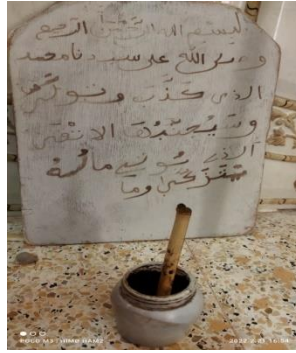 بسم الله الرحمن الرحيم
وصلى الله على سيدنا محمد
الذي كذب وتولى
وسيجنبها الاتقى
الذي يوتي ماله
يتزكى وما
POCO M3